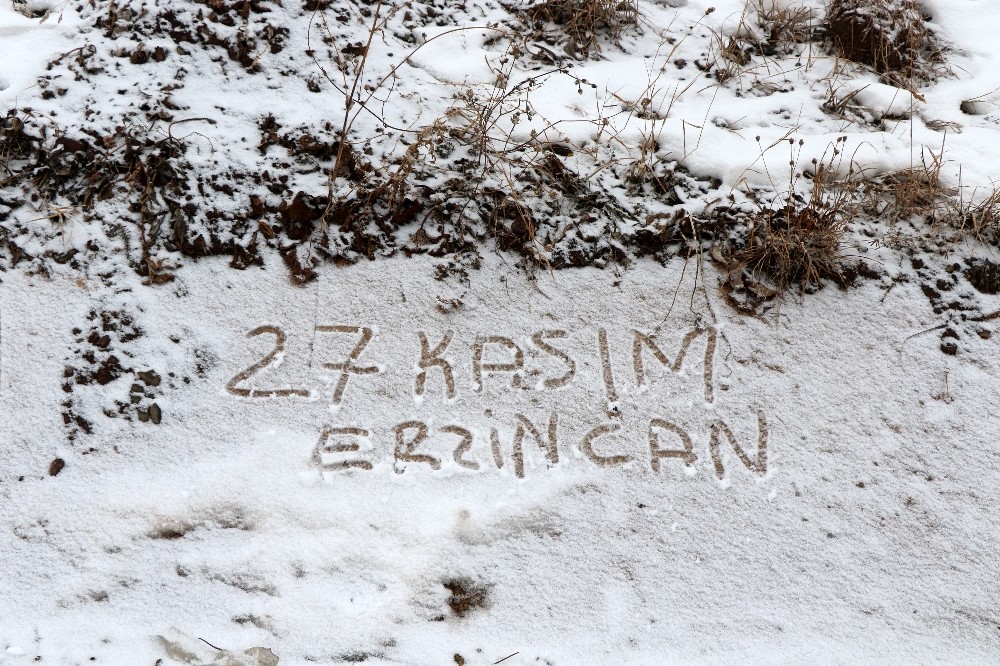 27 KASIM
ERZİNCAN